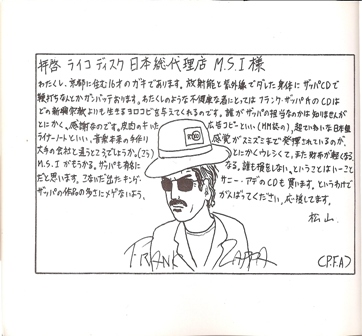 拝啓 ライコ ディスク 日本総代理店 M.S.I 様
わたくし、京都に住む16才のガキであります。放射能と紫外線でダレた身体にザッパCDで
鞭打ちなんとかガンバッテおります。わたくしのような不健康な者にとってはフランク・ザッパ氏のCDは
どの新興宗教よりも生きるヨロコビを与えてくれるのです。誰がザッパの担当なのかは知りませんが
とにかく、感謝なのです。皮肉のキいた
広告コピーといい(MM誌の)、超ていねいな日本盤
ライナーノートといい、音楽本来の手作り
感覚がスミズミまで発揮されているのが、
大手の会社と違うところでしょうか。(こう)
とにかくウレしくて、また財布が軽くなる
M.S.Iがもうかる。ザッパも有名に
なる。誰も損をしない。ということはいーこと
だと思います。こないだ出たキング・
サニー・アデのCDも買います。というわけで
ザッパの作品の多さにメゲないよう、
がんばってください。応援してます。
松山
FRANK ZAPPA
(P.F.A)